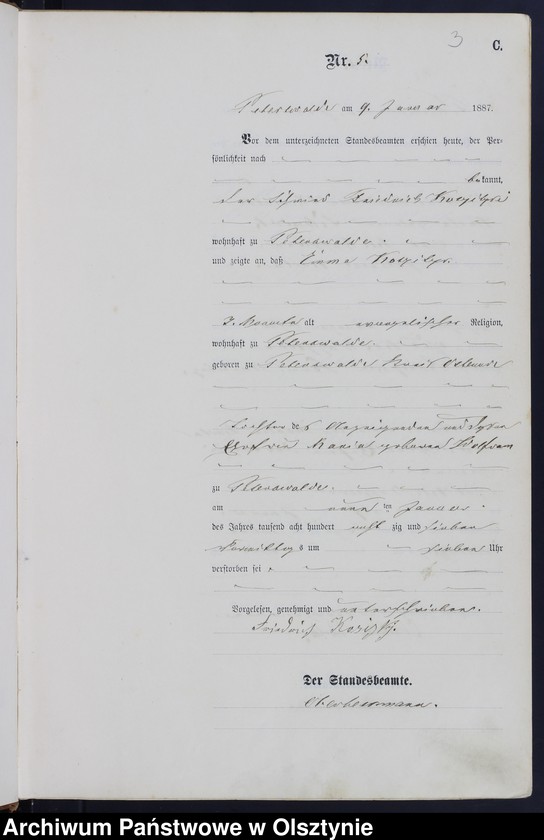 3
C.
Nr. 5.
Peterswalde am 9. Januar 1887.
Vor dem unterzeichneten Standesbeamten erschien heute, der Per-
sönlichkeit nach
bekannt,
der Schmied Friedrich
wohnhaft zu Peterswalde.
und zeigte an, daß Emma
7 Monate alt evangelischer Religion,
wohnhaft zu Peterswalde.
geboren zu Peterswalde Kreis Osterode
Tochter des Anzeigenden und dessen
Ehefrau Maria geborene
zu Peterswalde.
am neunten Januar
des Jahres tausend acht hundert achtzig und sieben
Vormittags um sieben Uhr
verstorben sei.
Vorgelesen, genehmigt und unterschrieben.
Friedrich
Der Standesbeamte.
Archiwum Państwowe w Olsztynie